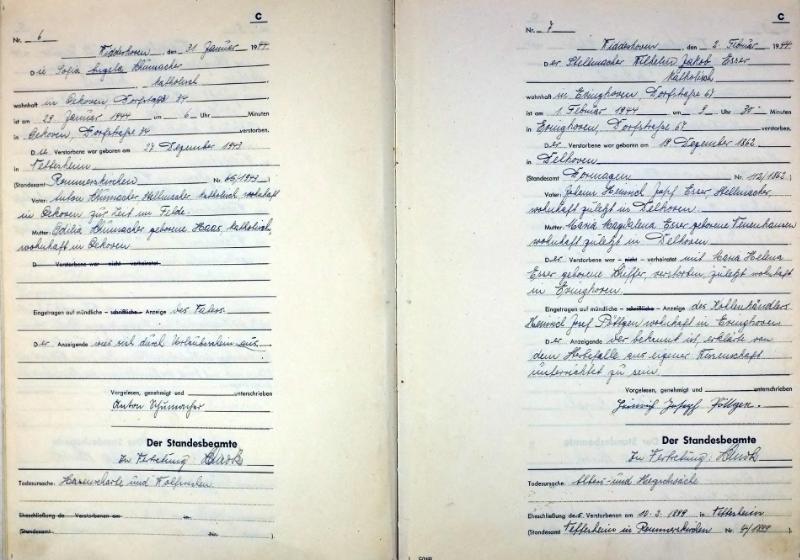 C
Nr. 6
Widdeshoven, den 31. Januar 1944
Die Sofia Angela Schumacher
katholisch
wohnhaft in Oekoven, Dorfstraße 84
ist am 29. Januar 1944 um 6 Uhr Minuten
in Oekoven, Dorfstraße 84 verstorben.
Die Verstorbene war geboren am 27. Dezember 1943
in Nettesheim
(Standesamt Rommerskirchen Nr. 65/1943)
Vater: Anton Schumacher, Stellmacher, katholisch, wohnhaft
in Oekoven zur Zeit im Felde.
Mutter: Odilia Schumacher geborene Haas, katholisch,
wohnhaft in Oekoven
D Verstorbene war nicht verheiratet
Eingetragen auf mündliche – schriftliche – Anzeige des Vaters.
Der Anzeigende wies sich durch Urlaubsschein aus.
Vorgelesen, genehmigt und unterschrieben
Anton Schumacher
Der Standesbeamte
In Vertretung:
Todesursache: Hasenscharte und Wolfsrachen.
Eheschließung de Verstorbenen am in
(Standesamt Nr. )
C
Nr. 7
Widdeshoven, den 2. Februar 1944
Der Stellmacher Wilhelm Jakob Esser
katholisch
wohnhaft in Evinghoven, Dorfstraße 67
ist am 1. Februar 1944 um 9 Uhr 30 Minuten
in Evinghoven, Dorfstraße 67 verstorben.
Der Verstorbene war geboren am 19. Dezember 1862
in Delhoven
(Standesamt Dormagen Nr. 112/1862)
Vater: Johann Heinrich Josef Esser, Stellmacher,
wohnhaft zuletzt in Delhoven.
Mutter: Maria Magdalena Esser geborene Neuenhausen
wohnhaft zuletzt in Delhoven
Der Verstorbene war – nicht – verheiratet mit Maria Helena
Esser geborene Steffer, verstorben, zuletzt wohnhaft
in Evinghoven.
Eingetragen auf mündliche – schriftliche – Anzeige des Kohlenhändlers
Heinrich Josef Pöttgen wohnhaft in Evinghoven
Der Anzeigende der bekannt ist, erklärte von
dem Sterbefalle aus eigener Wissenschaft
unterrichtet zu sein.
Vorgelesen, genehmigt und unterschrieben
Heinrich Joseph Pöttgen.
Der Standesbeamte
In Vertretung:
Todesursache: Alters- und Herzschwäche
Eheschließung des Verstorbenen am 10.3.1899 in Nettesheim
(Standesamt Nettesheim in Rommerskirchen Nr. 4/1899